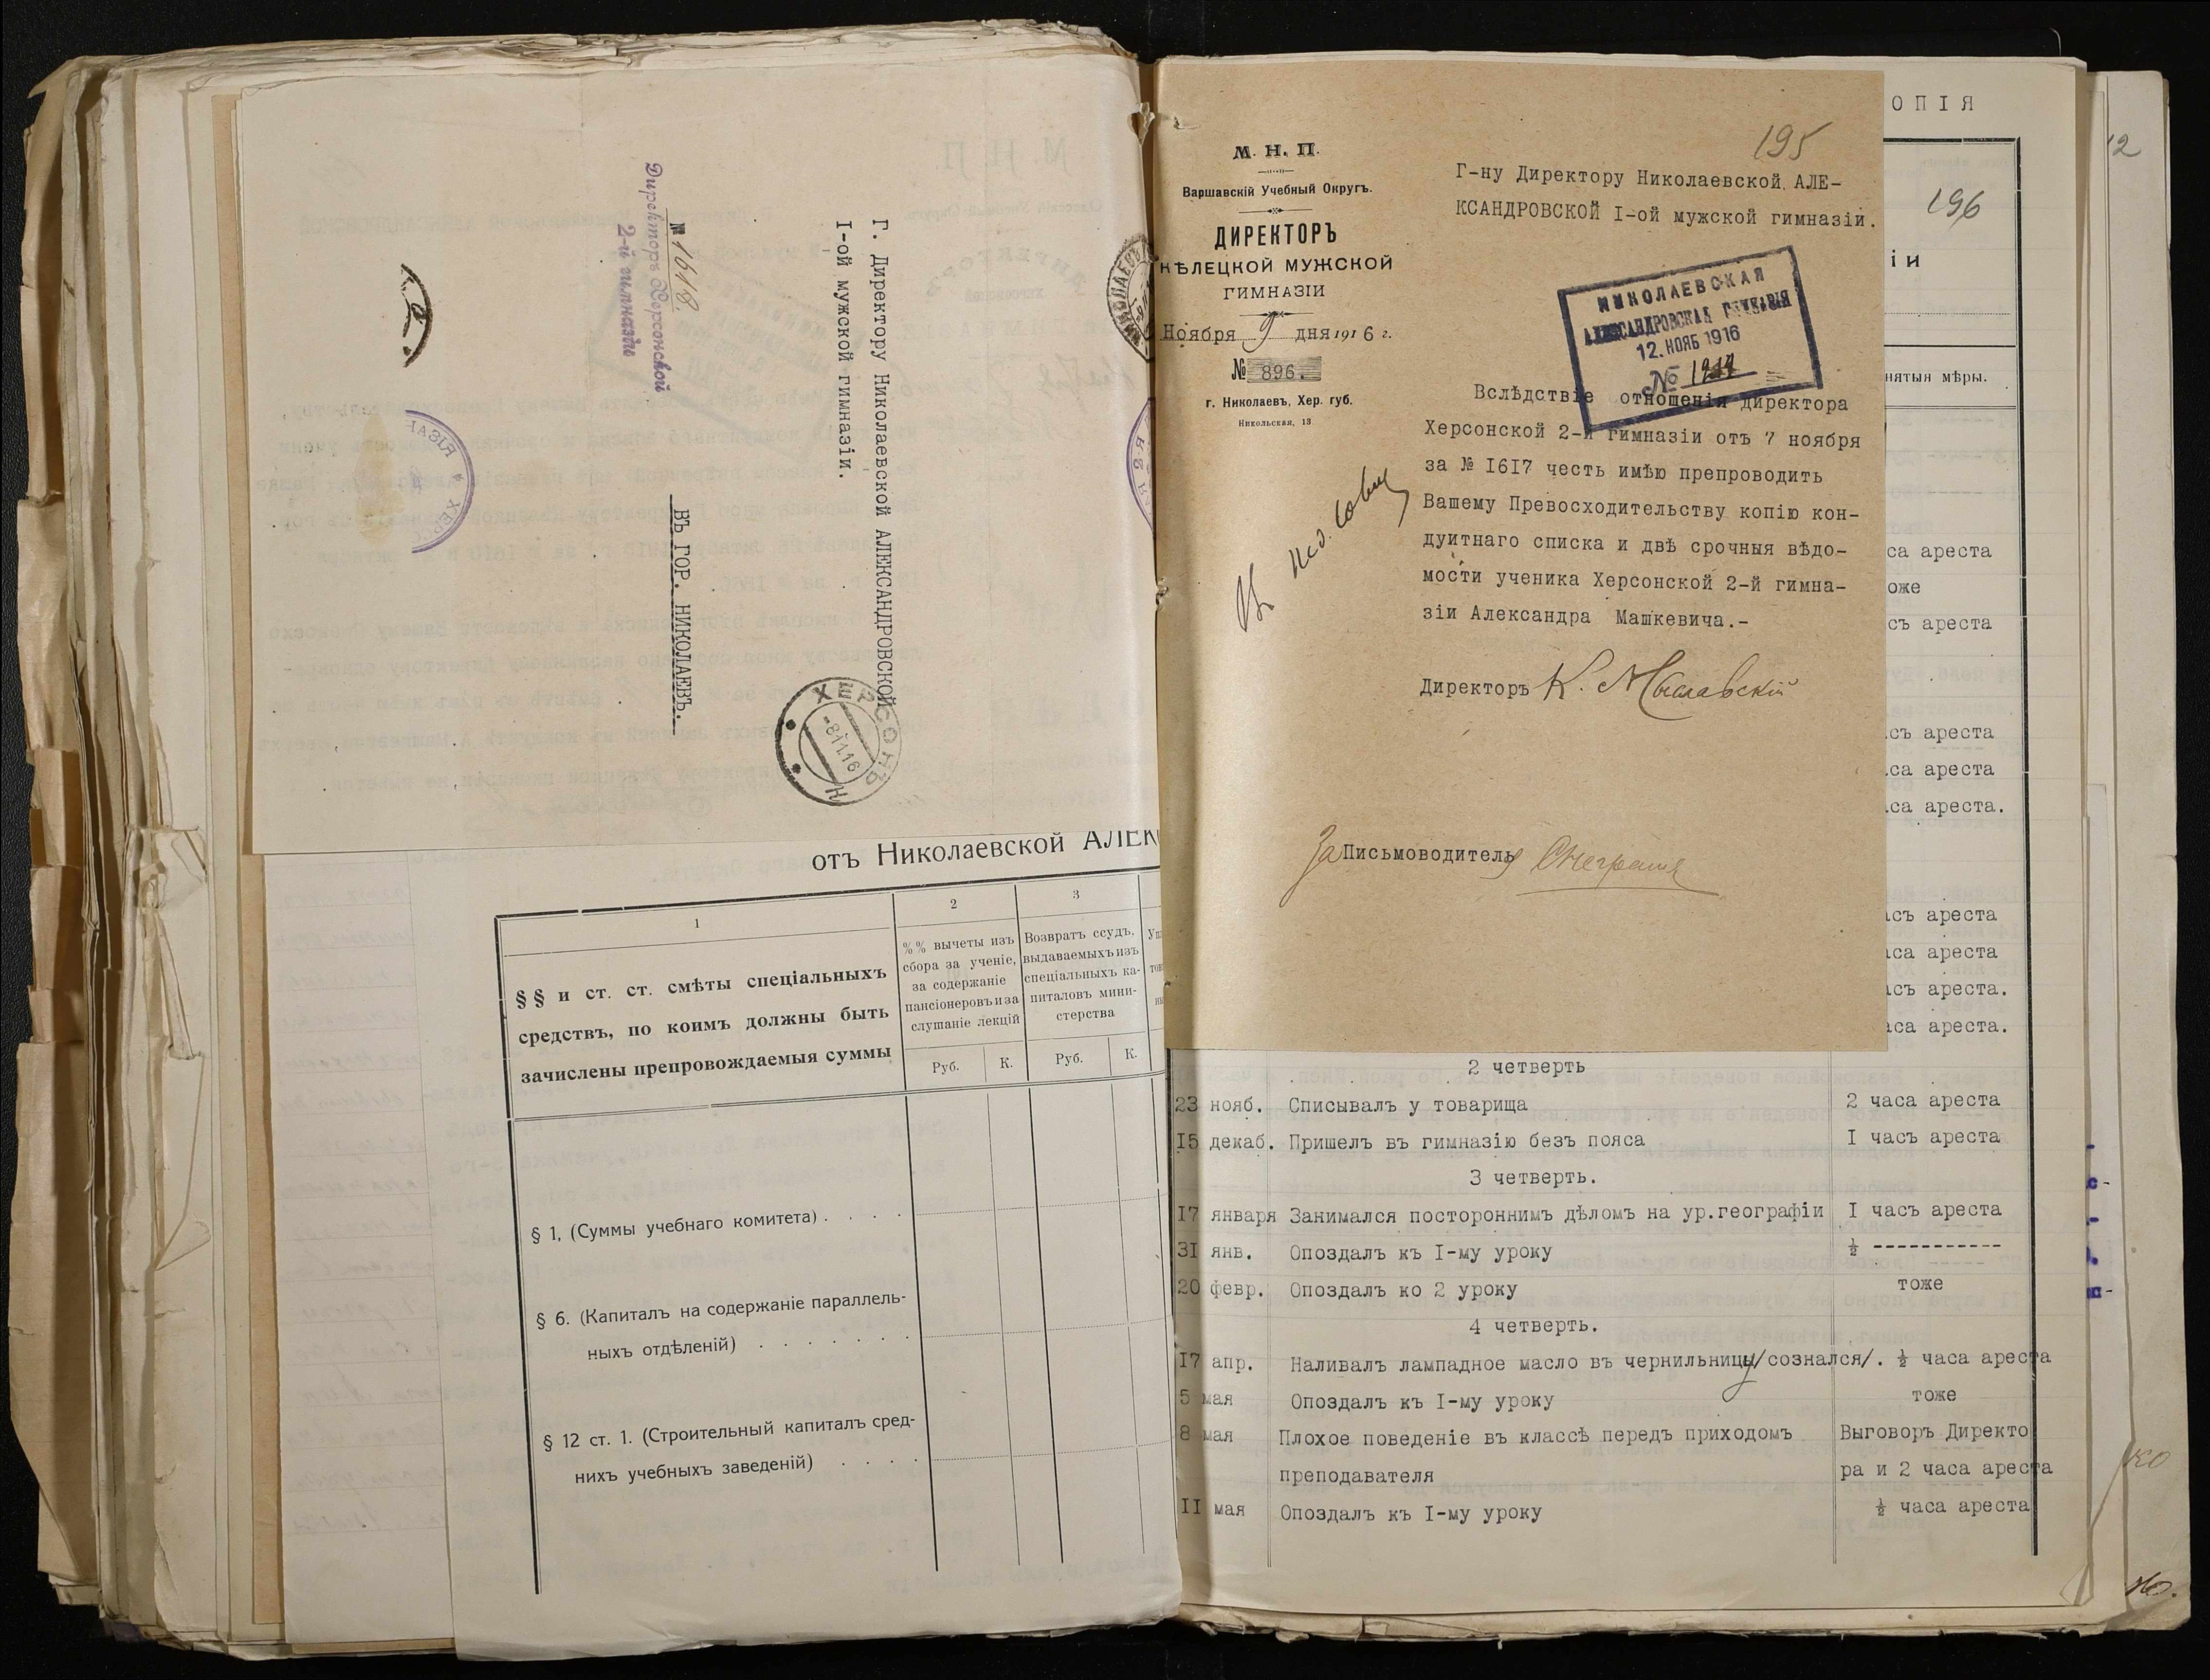 Г. Директору Николаевской АЛЕКСАНДРОВСКОЙ
I-ой мужской гимназіи.
ВЪ ГОР. НИКОЛАЕВЪ.
№ 1618.
Директоръ Херсонской
2-й гимназіи
ХЕРСОНЪ
-8.11.16
отъ Николаевской АЛЕК
1
2
3
§§ и ст. ст. смѣты спеціальныхъ
средствъ, по коимъ должны быть
зачислены препровождаемыя суммы
%% вычеты изъ
сбора за ученіе,
за содержаніе
пансіонеровъ и за
слушаніе лекцій
Возвратъ ссудъ,
выдаваемыхъ изъ
спеціальныхъ ка-
питаловъ мини-
стерства
Руб.
К.
Руб.
К.
§ 1, (Суммы учебнаго комитета) . . . .
§ 6. (Капиталъ на содержаніе параллель-
ныхъ отдѣленій) . . . . . . .
§ 12 ст. 1. (Строительный капиталъ сред-
нихъ учебныхъ заведеній) . . . .
195
М. Н. П.
Варшавскій Учебный Округъ.
ДИРЕКТОРЪ
КѢЛЕЦКОЙ МУЖСКОЙ
ГИМНАЗІИ
Ноября 9 дня 1916 г.
№ 896.
г. Николаевъ, Хер. губ.
Никольская, 13
Г-ну Директору Николаевской АЛЕ-
КСАНДРОВСКОЙ I-ой мужской гимназіи.
НИКОЛАЕВСКАЯ
АЛЕКСАНДРОВСКАЯ ГИМНАЗІЯ
12. НОЯБ 1916
№
Вслѣдствіе отношенія директора
Херсонской 2-й гимназіи отъ 7 ноября
за № I6I7 честь имѣю препроводить
Вашему Превосходительству копію кон-
дуитнаго списка и двѣ срочныя вѣдо-
мости ученика Херсонской 2-й гимна-
зіи Александра Машкевича.-
Директоръ К. Мысавскій
За Письмоводителя
ОПІЯ
196
іи
нятыя мѣры.
са ареста
оже
съ ареста
съ ареста
са ареста
са ареста.
съ ареста
са ареста
асъ ареста.
аса ареста.
2 четверть
23 нояб. Списывалъ у товарища 2 часа ареста
I5 декаб. Пришелъ въ гимназію безъ пояса I часъ ареста
3 четверть.
I7 января Занимался постороннимъ дѣломъ на ур.географіи I часъ ареста
3I янв. Опоздалъ къ I-му уроку ½ -----------
20 февр. Опоздалъ ко 2 уроку тоже
4 четверть.
I7 апр. Наливалъ лампадное масло въ чернильницу/сознался/. ½ часа ареста
5 мая Опоздалъ къ I-му уроку тоже
8 мая Плохое поведеніе въ классѣ передъ приходомъ Выговоръ Директо
преподавателя ра и 2 часа ареста
II мая Опоздалъ къ I-му уроку ½ часа ареста